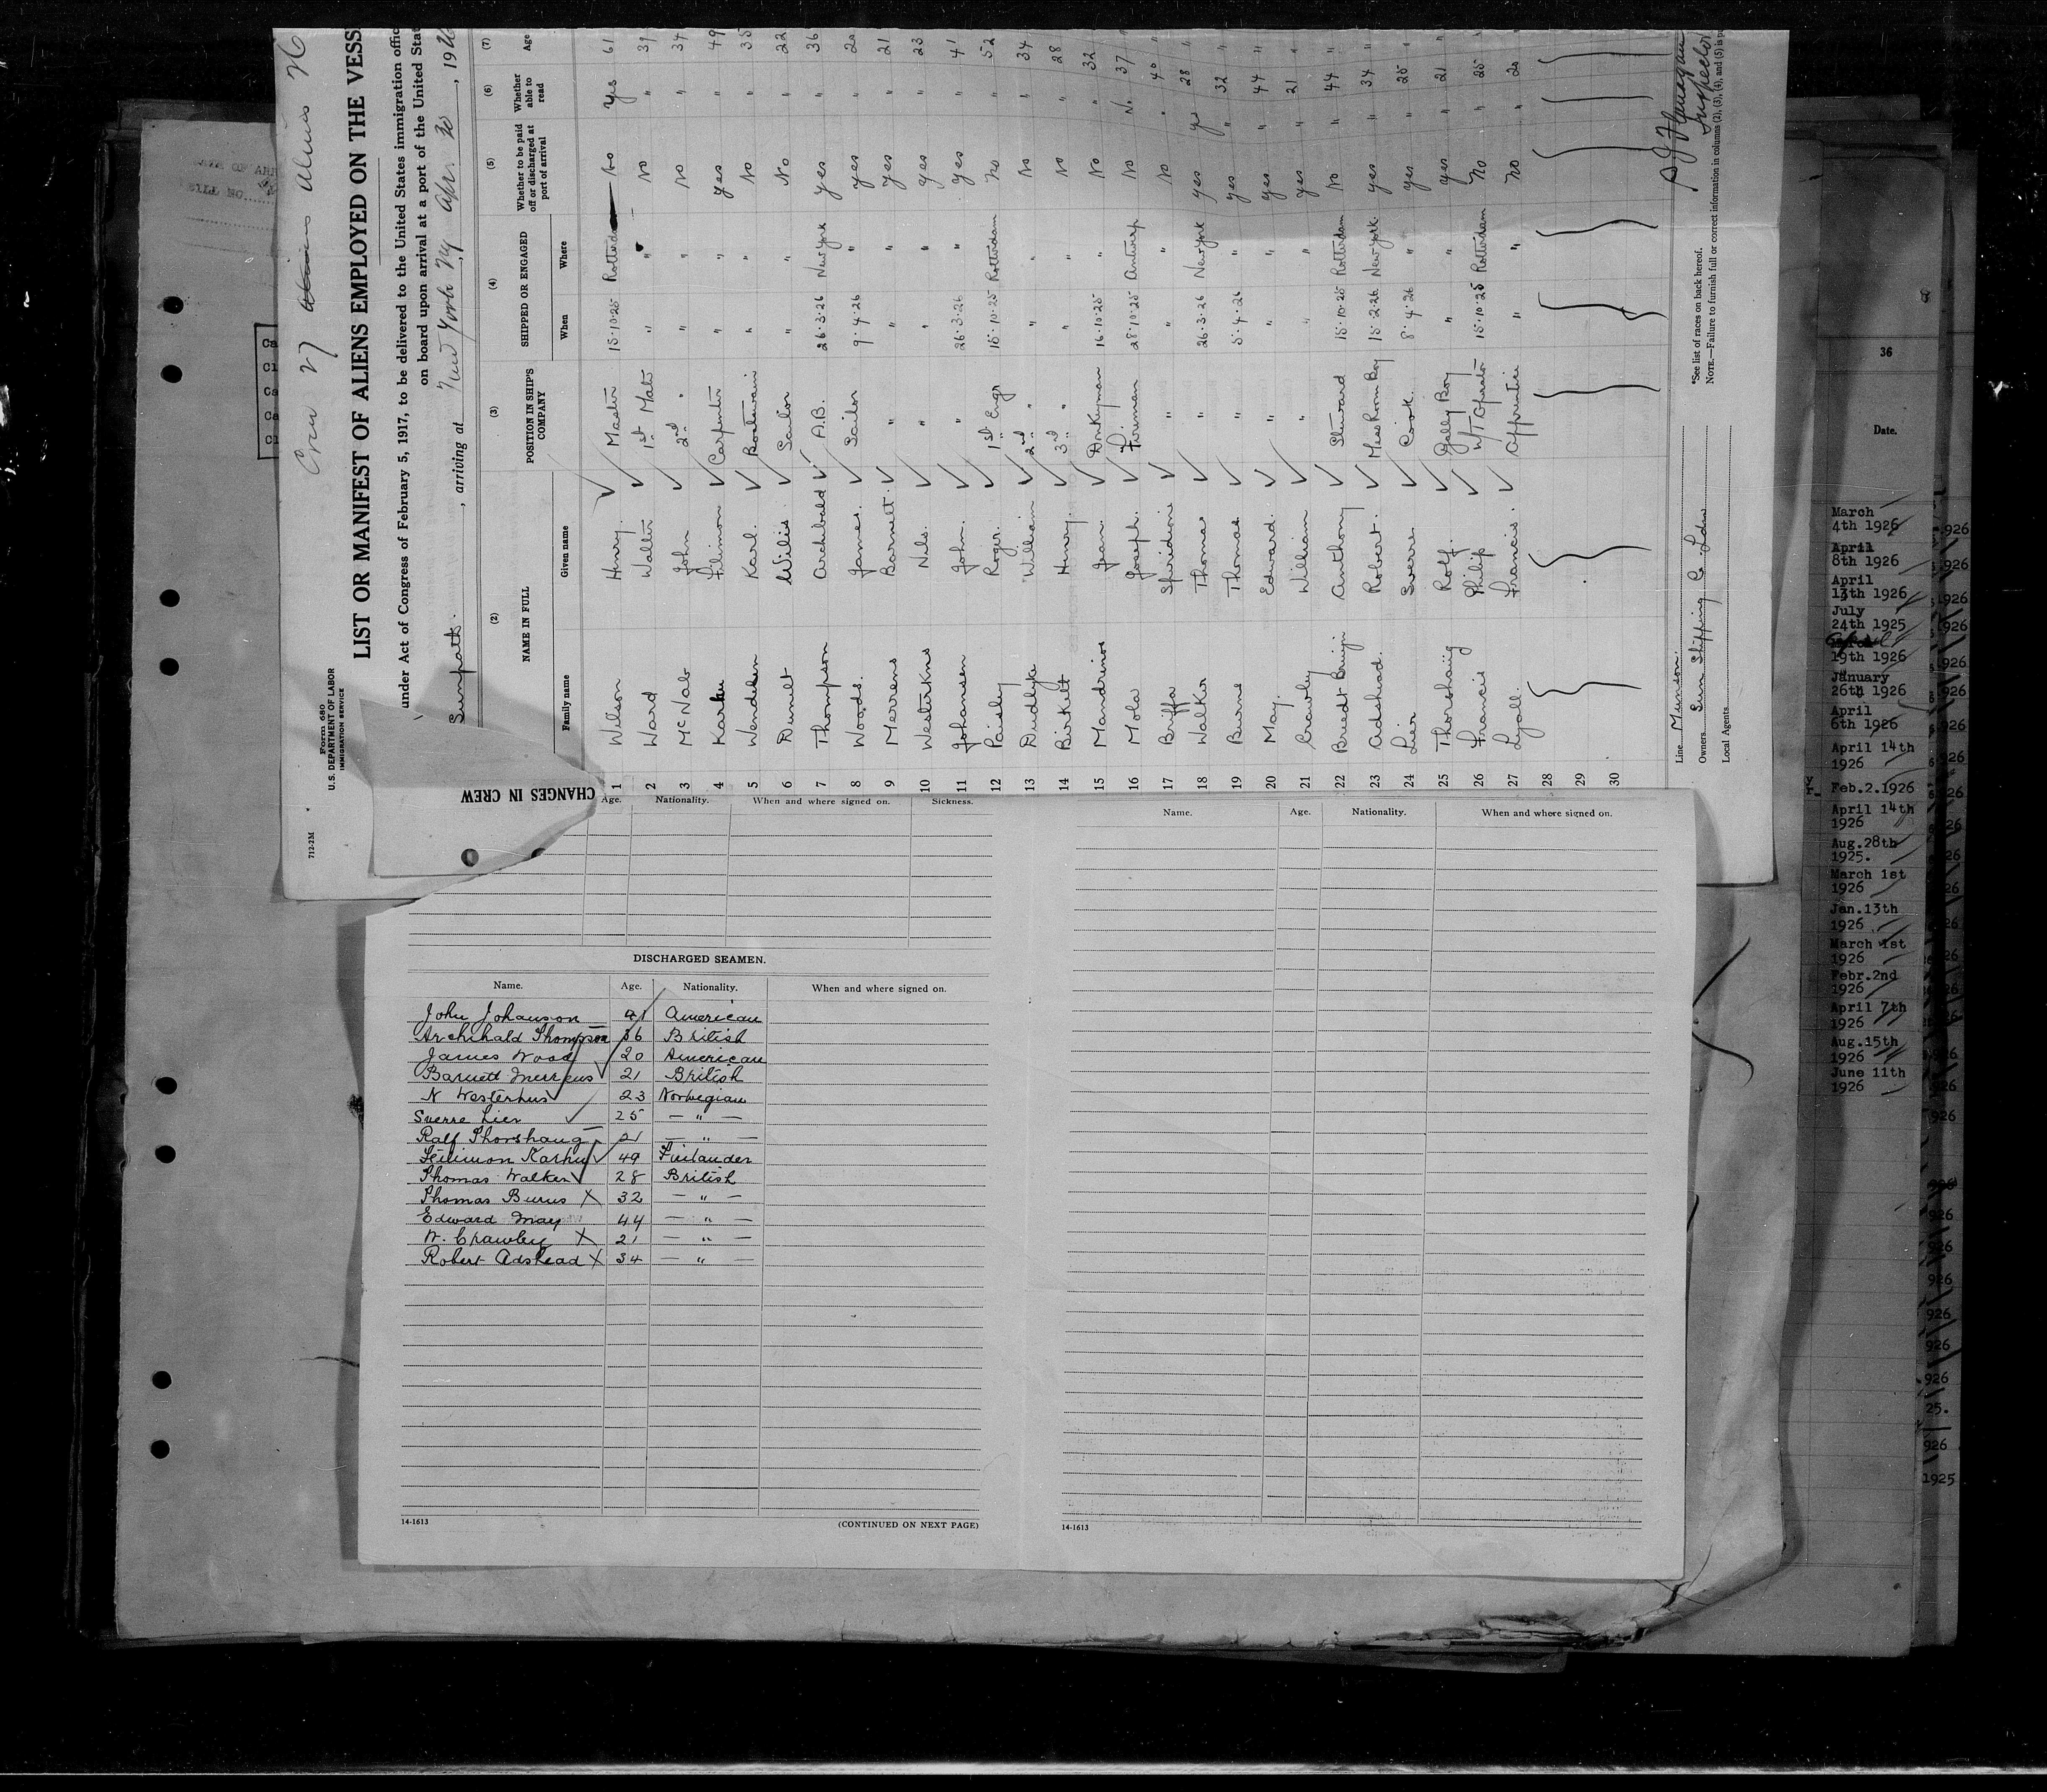 Crew 27 Aliens 26
Form 680
U.S. DEPARTMENT OF LABOR
IMMIGRATION SERVICE
712-2M
LIST OR MANIFEST OF ALIENS EMPLOYED ON THE VESS
under Act of Congress of February 5, 1917, to be delivered to the United States immigration offic
on board upon arrival at a port of the United Stat
Sunpath. , arriving at New York NY Apr. 20 , 1926
(2) (3) (4) (5) (6) (7)
NAME IN FULL POSITION IN SHIP'S COMPANY SHIPPED OR ENGAGED Whether to be paid off or discharged at port of arrival Whether able to read Age
Family name Given name When Where
1 Wilson Henry. Master 15.10.25 Rotterdam No Yes 61
2 Ward Walter 1st Mate " " No " 39
3 McNab John 2nd " " " No " 34
4 Karhu Filimon Carpenter " " yes " 49
5 Karl. Boatswain " " No " 35
6 Willis. Sailor " " No " 22
7 Thompson Archibald A.B. 26.3.26 New York yes " 36
8 Woods. James. Sailor 9.4.26 " yes " 20
9 Merrens Barnett. " " " yes " 21
10 Nels. " " " yes " 23
11 Johansen John. " 26.3.26 " yes " 41
12 Paisley Roger. 1st Engr 15.10.25 Rotterdam No " 52
13 William 2nd " " " No " 34
14 Birkett Henry. 3rd " " " No " 28
15 Mandrinos Jean. Donkeyman 16.10.25 " No " 32
16 Mola Joseph. Fireman 28.10.25 Antwerp No No 37 "
17 Briffa Spiridioni " " " No " 40 "
18 Walker Thomas " 26.3.26 New York yes yes 28 "
19 Burns Thomas " 5.4.26 " yes " 32 "
20 May. Edward. " " " yes " 44 "
21 Crawley William " " " yes " 21 "
22 Anthony Steward 15.10.25 Rotterdam No " 44 "
23 Adshead. Robert. Mess Room Boy 15.2.26 New York yes " 34 "
24 Lier Sverre Cook. 8.4.26 " yes " 25 "
25 Thorshaug Rolf. Gally Boy " " yes " 21 "
26 Francis Philip W/T Operator 15.10.25 Rotterdam No " 25 "
27 Lyall. Francis. Apprentice " " No " 20 "
28
29
30
Line Munson.
Owners Sun Shipping Co. Ldn.
Local Agents
*See list of races on back hereof.
NOTE.—Failure to furnish full or correct information in columns (2), (3), (4), and (5) is pu
Flanagan
Inspector
CHANGES IN CREW
Age. Nationality. When and where signed on. Sickness.
Name. Age. Nationality. When and where signed on.
DISCHARGED SEAMEN.
Name. Age. Nationality. When and where signed on.
John Johanson 41 American
Archibald Thompson 36 British
James Wood 20 American
Barnett Merrens 21 British
N Westerhus 23 Norwegian
Sverre Lier 25 — " —
Ralf Thorshaug 21 — " —
Felimon Karhu 49 Finlander
Thomas Walker 28 British
Thomas Burns X 32 — " —
Edward May 44 — " —
W. Crawley X 21 — " —
Robert Adshead X 34 — " —
14-1613 (CONTINUED ON NEXT PAGE)
14-1613
36
Date.
March
4th 1926
April
8th 1926
April
13th 1926
July
24th 1925
April
19th 1926
January
26th 1926
April
6th 1926
April 14th
1926
Feb.2.1926
April 14th
1926
Aug.28th
1925.
March 1st
1926
Jan.13th
1926
March 1st
1926
Febr.2nd
1926
April 7th
1926
Aug.15th
1926
June 11th
1926